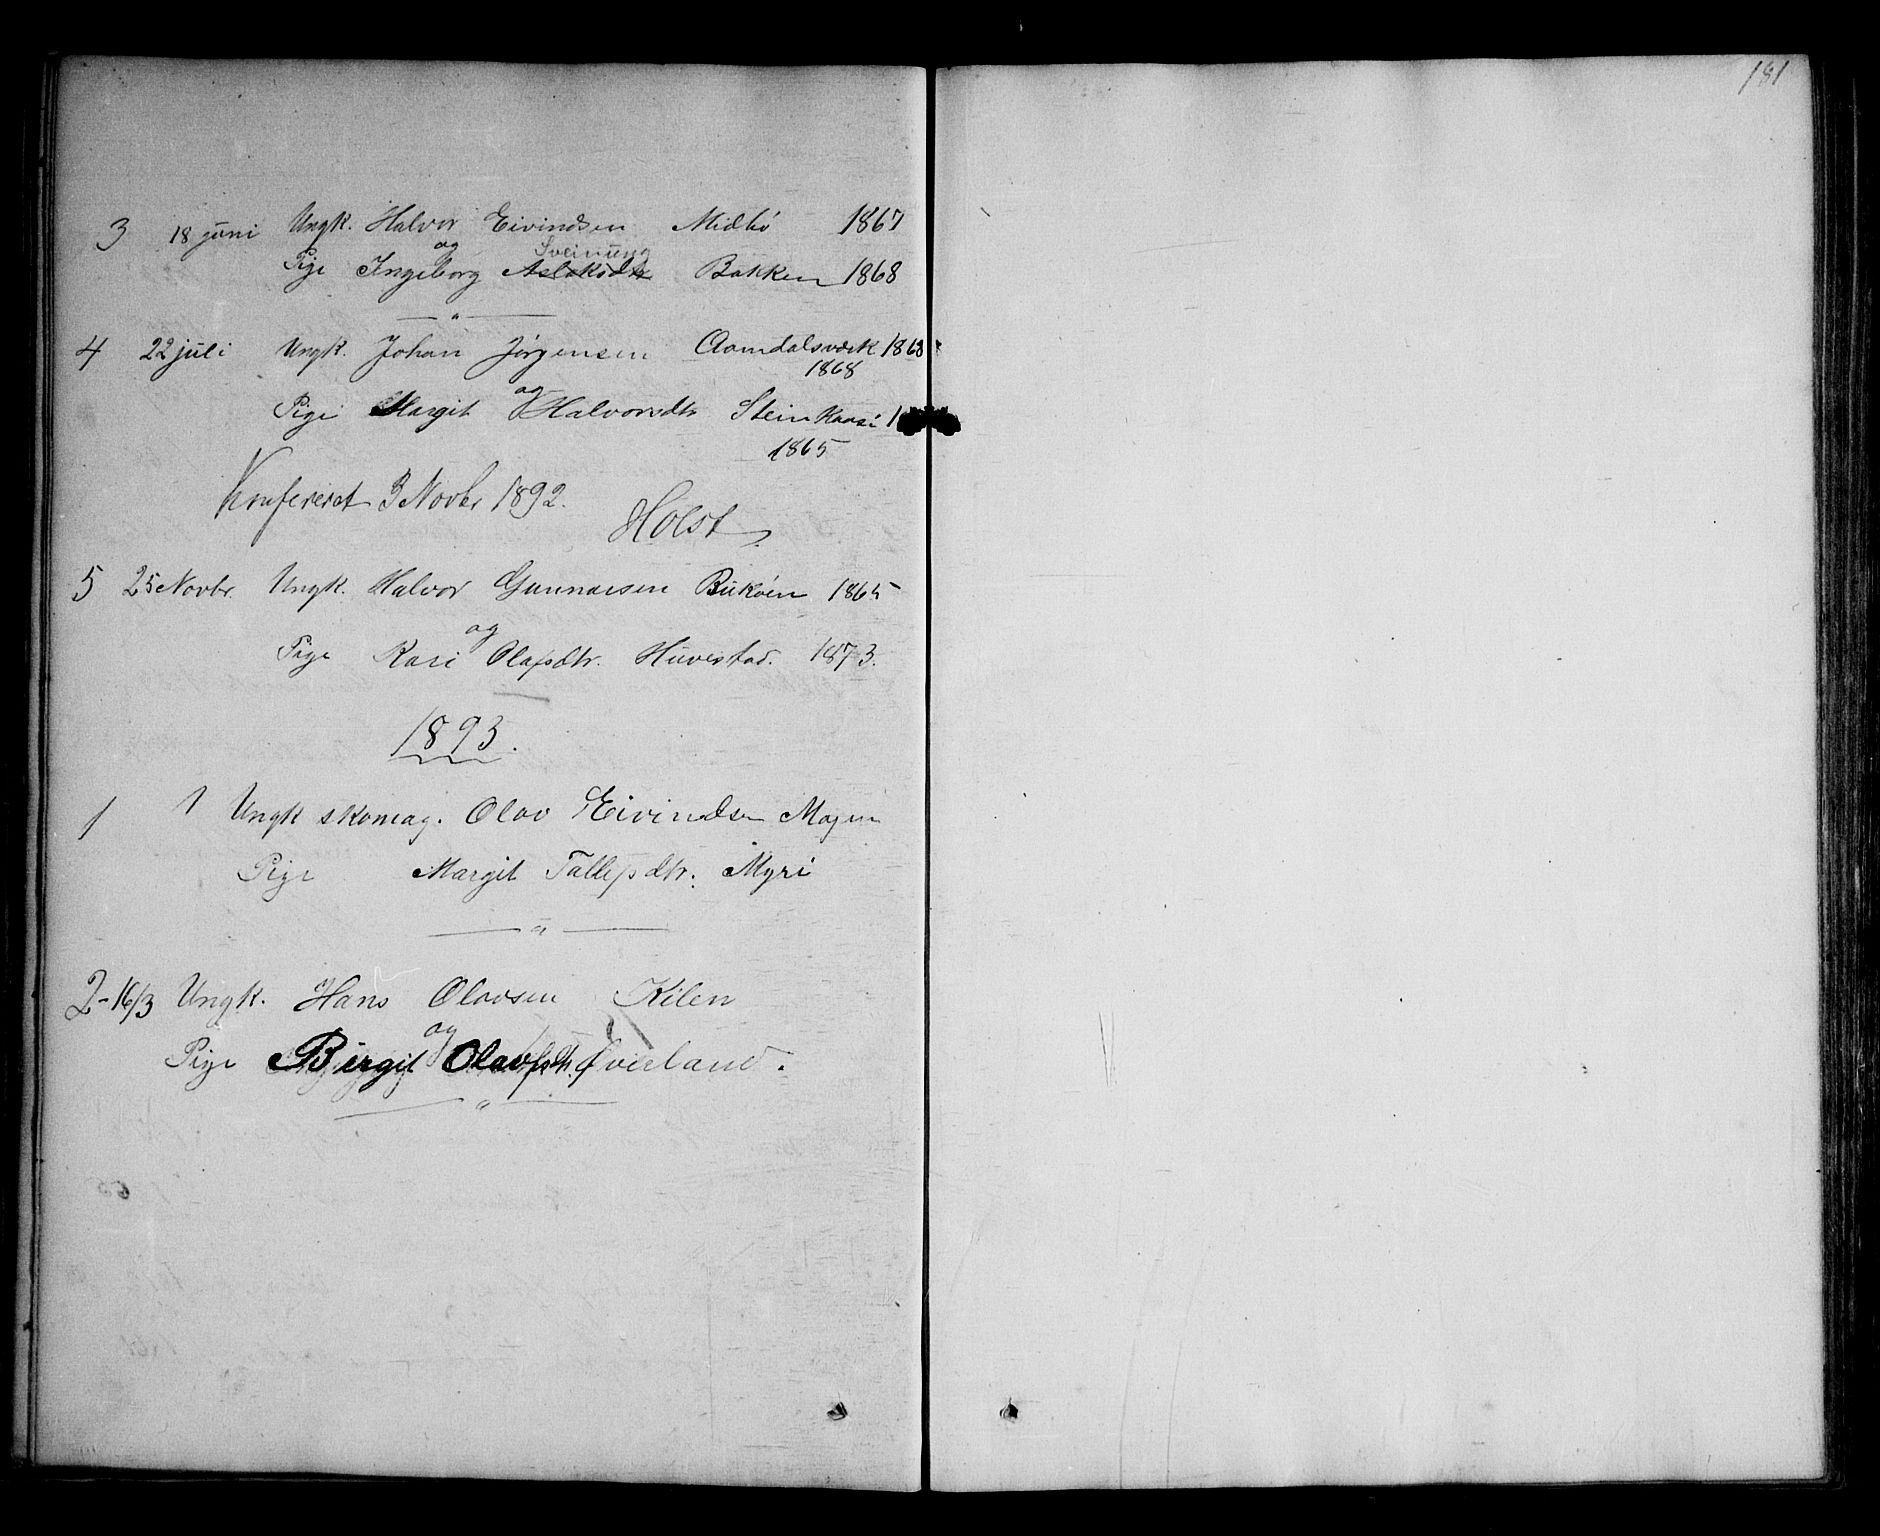 181
3 18 juni Ungk. Halvor Eivindsen Midbø 1867
og Sveinung
Pige Ingeborg Aslaksdtr Bakken 1868
4 22 juli Ungk. Johan Jørgensen Aamdalsværk 1868
1868
og
Pige Margit Halvorsdtr Steinkaasi 1
1865
Konfereret 3 Novbr 1892.
Holst
5 25 Novbr. Ungk. Halvor Gunnarsen Bukøen 1865
og
Pige Kari Olafsdtr. Huvestad. 1873.
1893.
1 1 Ungk skomag. Olav Eivindsen Mogen
Pige Margit Tallefsdtr. Myri
2 - 16/3 Ungk. Hans Olavsen Kilen
og
Pige Birgit Olavsdtr. Øverland.